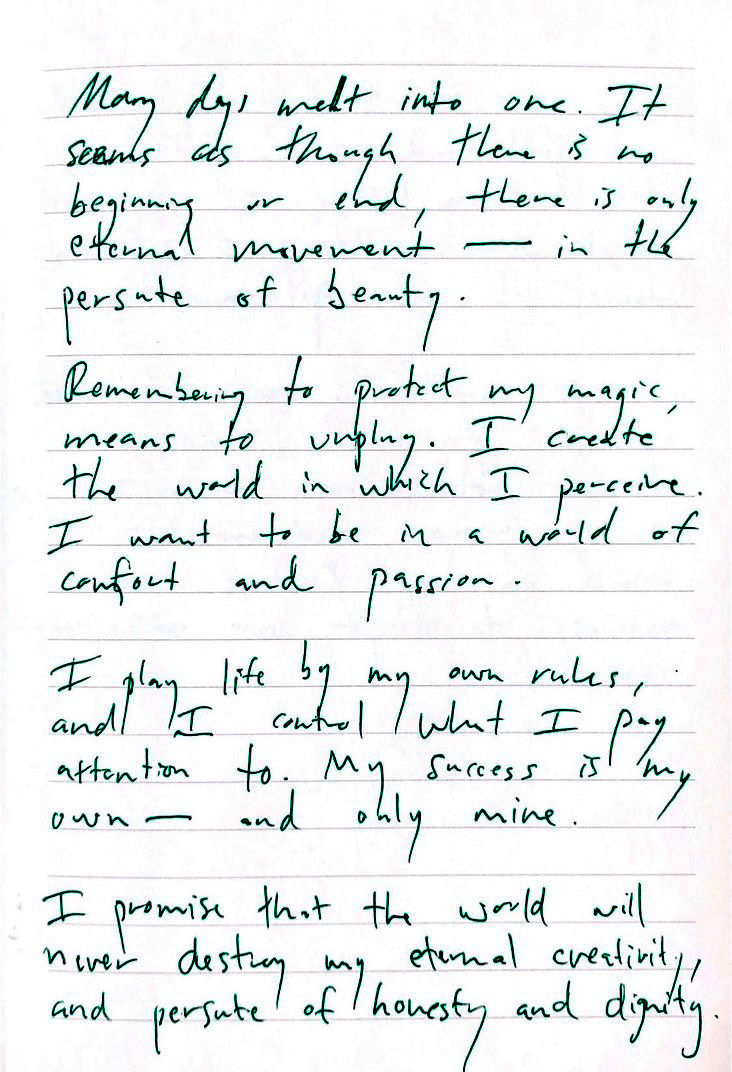 Many days melt into one. It
seems as though there is no
beginning or end, there is only
eternal movement — in the
persute of beauty.
Remembering to protect my magic,
means to unplug. I create
the world in which I perceive.
I want to be in a world of
comfort and passion.
I play life by my own rules,
and I control what I pay
attention to. My success is my
own — and only mine.
I promise that the world will
never destroy my eternal creativity,
and persute of honesty and dignity.